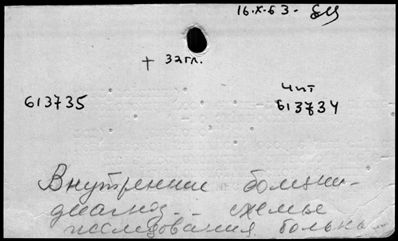 16.X.63.
+ загл.
Чит
613735 613734
Внутренние болезни-
диагноз - схемы
исследования больн